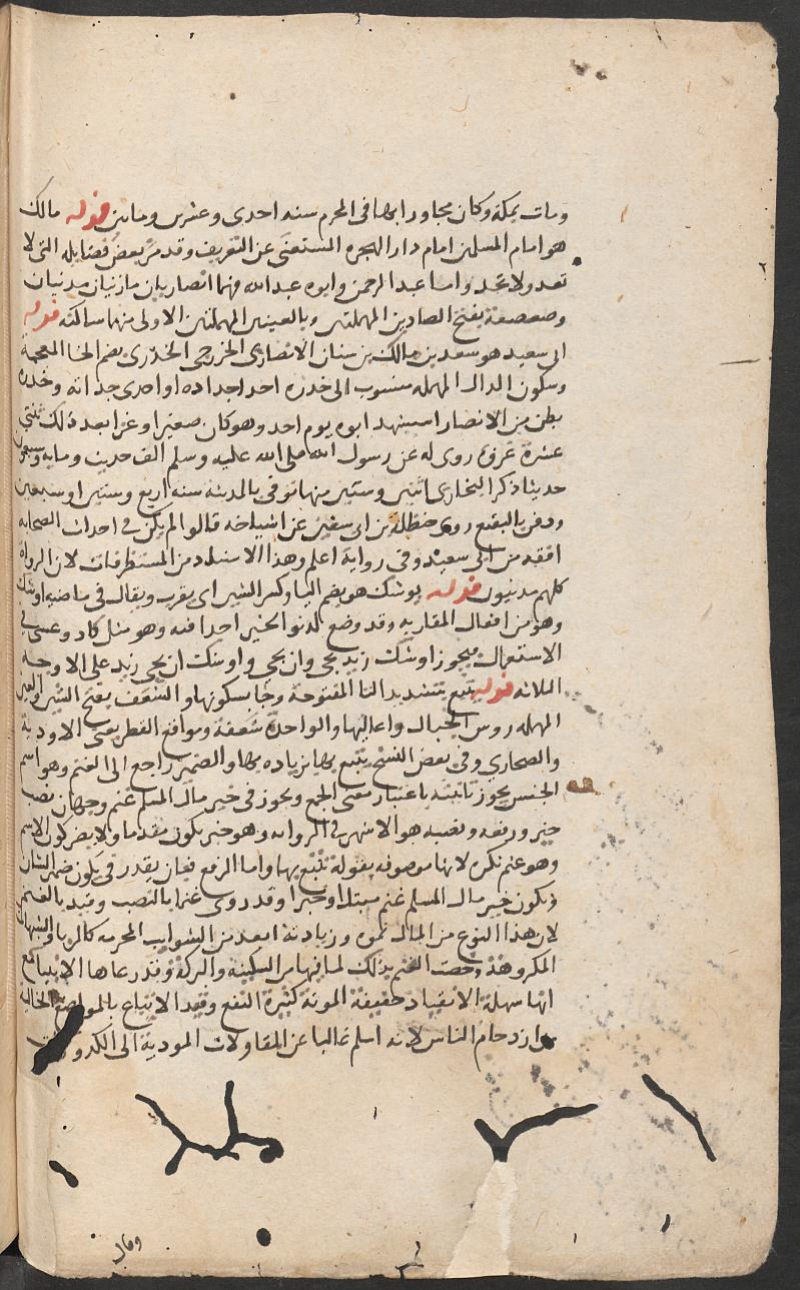 ومات بمكة وكان مجاورا بها فى المحرم سنه احدى وعشرىن وماىىن قوله مالك
هو امام المسلمىن امام دار الهجره المستغنى عن التعريف وقد مر بعض فضايله التى لا
تعد ولا تحد واما عبد الرحمن وابوه عبد الله فهما انصاريان مازنيان مدنيان
وصعصعة بفتح الصادين المهملتين وبالعينين المهملتين الاولى منهما ساكنه قوله
ابى سعيد هو سعد بن مالك بن سنان الانصارى الخزرجى الخدرى بضم الخا المعجمة
وسكون الدال المهمله منسوب الى خدره احد اجداده او احدى جداته وخدره
بطن من الانصار استشهد ابوه يوم احد وهو كان صغيرا وغزا بعد ذلك ثنتى
عشرة غزوة روى له عن رسول الله صلى الله عليه وسلم الف حديث ومايه وسبعون
حديثا ذكر البخارى اثنين وستين منها توفى بالمدينه سنه اربع وستين او سبعين
ودفن بالبقيع روى حنظلة بن ابى سفين عن اشياخه قالوا لم يكن فى احداث الصحابه
افقه من ابى سعيد وفى رواية اعلم وهذا الاسناد من المستظرفات لان الرواة
كلهم مدنيون قوله يوشك هو بضم اليا وكسر الشين اى يقرب ويقال فى ماضيه اوشك
وهو من افعال المقاربه وقد وضع لدنو الخبر اخذا فيه وهو مثل كاد وعسى فى
الاستعمال فيجوز اوشك زيد يجى وان يجى واوشك ان يجى زيد على الاوجه
الثلاثه قوله يتبع بتشديد التا المفتوحة وجا بسكونها والشعف بفتح الشين والعين
المهمله روس الجبال واعاليها والواحدة شعفة ومواقع القطر يعنى الاودية
والصحارى وفى بعض النسخ يتبع بها بزياده بها والضمير راجع الى الغنم وهو اسم
الجنس يجوز تانيثه باعتبار معنى الجمع ويجوز فى خير مال المسلم غنم وجهان نصب
خير ورفعه ونصبه هو الاشهر فى الروايه وهو خبر يكون مقدما ولا يضر كون الاسم
وهو غنم نكره لانها موصوفه بقوله يتبع بها واما الرفع فبان يقدر فى يكون ضمير الشان
ويكون خير مال المسلم غنم مبتدا وخبرا وقد روى غنما بالنصب وقيد بالغنم
لان هذا النوع من المال نموه وزيادته ابعد من الشوايب المحرمه كالربا والشبهات
المكروهة وخصت الغنم بذلك لما فيها من السكينه والبركة وقد رعاها الانبيا مع
انها سهلة الانقياد خفيفة المونة كثيرة النفع وقيد الاتباع بالمواضع الخالية
ازدحام الناس لانه اسلم غالبا عن المقاولات المودية الى الكدورات
وقال